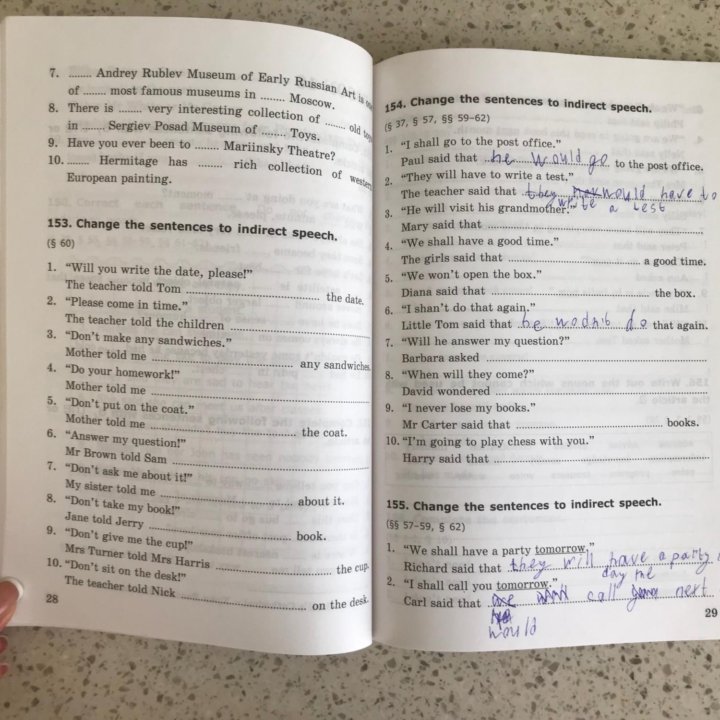 7. ........ Andrey Rublev Museum of Early Russian Art is one
of ........ most famous museums in ........ Moscow.
8. There is ........ very interesting collection of ........ old toys
in ........ Sergiev Posad Museum of ........ Toys.
9. Have you ever been to ........ Mariinsky Theatre?
10. ........ Hermitage has ........ rich collection of western
European painting.
153. Change the sentences to indirect speech.
(§ 60)
1. “Will you write the date, please!”
The teacher told Tom ........ the date.
2. “Please come in time.”
The teacher told the children ........
3. “Don’t make any sandwiches.”
Mother told me ........ any sandwiches.
4. “Do your homework!”
Mother told me ........
5. “Don’t put on the coat.”
Mother told me ........ the coat.
6. “Answer my question!”
Mr Brown told Sam ........
7. “Don’t ask me about it!”
My sister told me ........ about it.
8. “Don’t take my book!”
Jane told Jerry ........ book.
9. “Don’t give me the cup!”
Mrs Turner told Mrs Harris ........ the cup.
10. “Don’t sit on the desk!”
The teacher told Nick ........ on the desk.
28
154. Change the sentences to indirect speech.
(§ 37, § 57, §§ 59–62)
1. “I shall go to the post office.”
Paul said that he would go to the post office.
2. “They will have to write a test.”
The teacher said that they would have to
write a test
3. “He will visit his grandmother.”
Mary said that ........
4. “We shall have a good time.”
The girls said that ........ a good time.
5. “We won’t open the box.”
Diana said that ........ the box.
6. “I shan’t do that again.”
Little Tom said that he do that again.
7. “Will he answer my question?”
Barbara asked ........
8. “When will they come?”
David wondered ........
9. “I never lose my books.”
Mr Carter said that ........ books.
10. “I’m going to play chess with you.”
Harry said that ........
155. Change the sentences to indirect speech.
(§§ 57–59, § 62)
1. “We shall have a party tomorrow.”
Richard said that they will have a party
day me
2. “I shall call you tomorrow.”
Carl said that call next
would
29